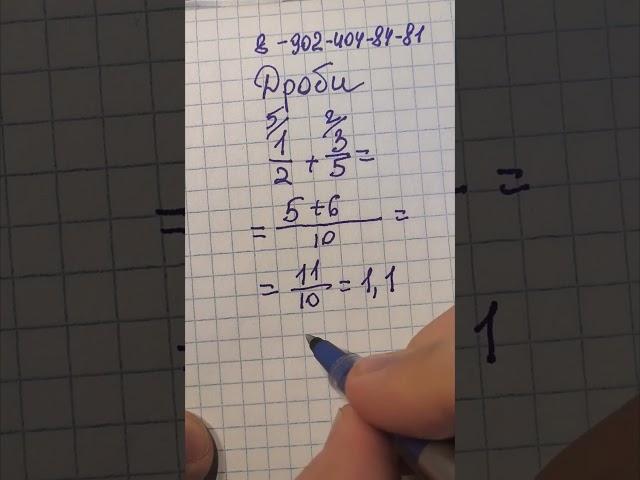 8-902-404-84-81
Дроби
5/ 2/
1/2 + 3/5 =
= 5+6/10 =
= 11/10 = 1,1